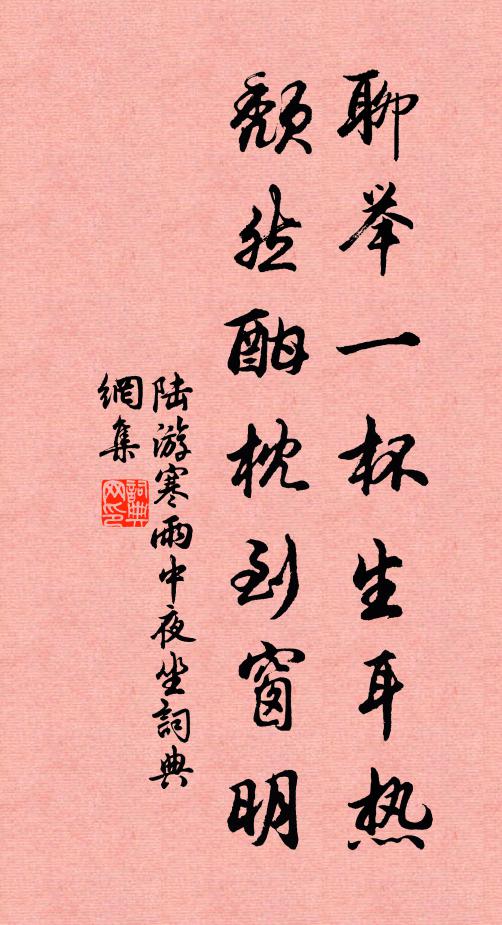 聊举一杯生耳热
颓然酣枕到窗明
陆游寒雨中夜坐詞典
網集
詞典
网印